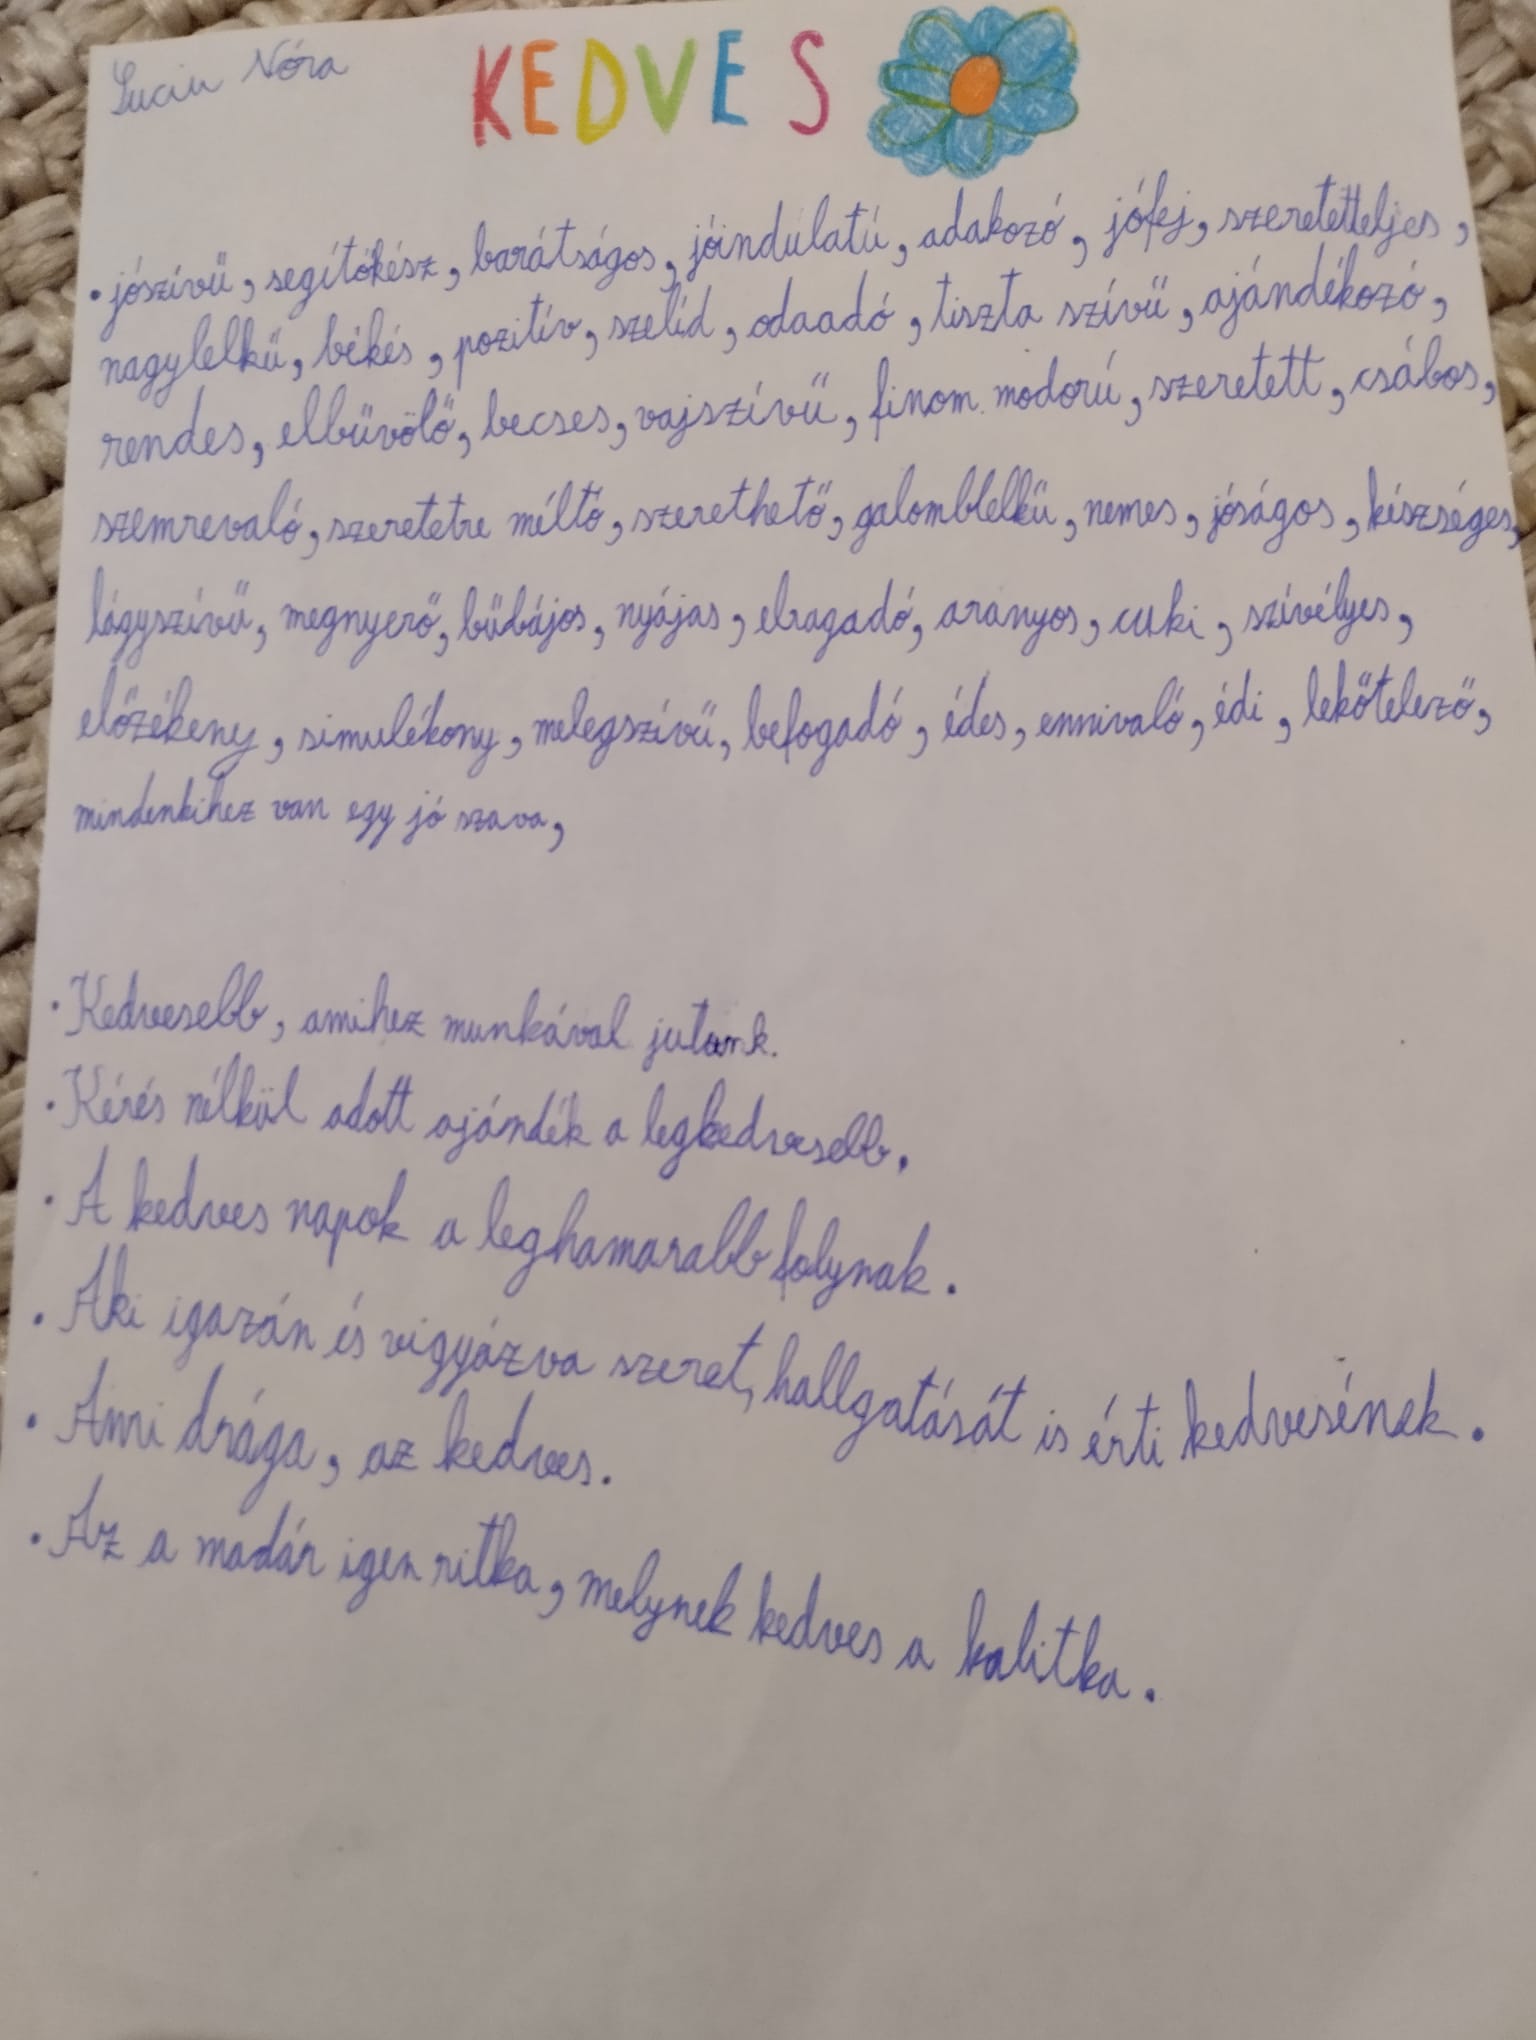 Luciu Nóra
KEDVES
• jószívű, segítőkész, barátságos, jóindulatú, adakozó, jófej, szeretetteljes,
nagylelkű, békés, pozitív, szelíd, odaadó, tiszta szívű, ajándékozó,
rendes, elbűvölő, becses, vajszívű, finom modorú, szeretett, csábos,
szemrevaló, szeretetre méltó, szerethető, galamblelkű, nemes, jóságos, készséges,
lágyszívű, megnyerő, bűbájos, nyájas, elragadó, aranyos, cuki, szívélyes,
előzékeny, simulékony, melegszívű, befogadó, édes, ennivaló, édi, lekőtelező,
mindenkihez van egy jó szava,
• Kedvesebb, amihez munkával jutunk.
• Kérés nélkül adott ajándék a legkedvesebb.
• A kedves napok a leghamarabb folynak.
• Aki igazán és vigyázva szeret, hallgatását is érti kedvesének.
• Ami drága, az kedves.
• Az a madár igen ritka, melynek kedves a kalitka.